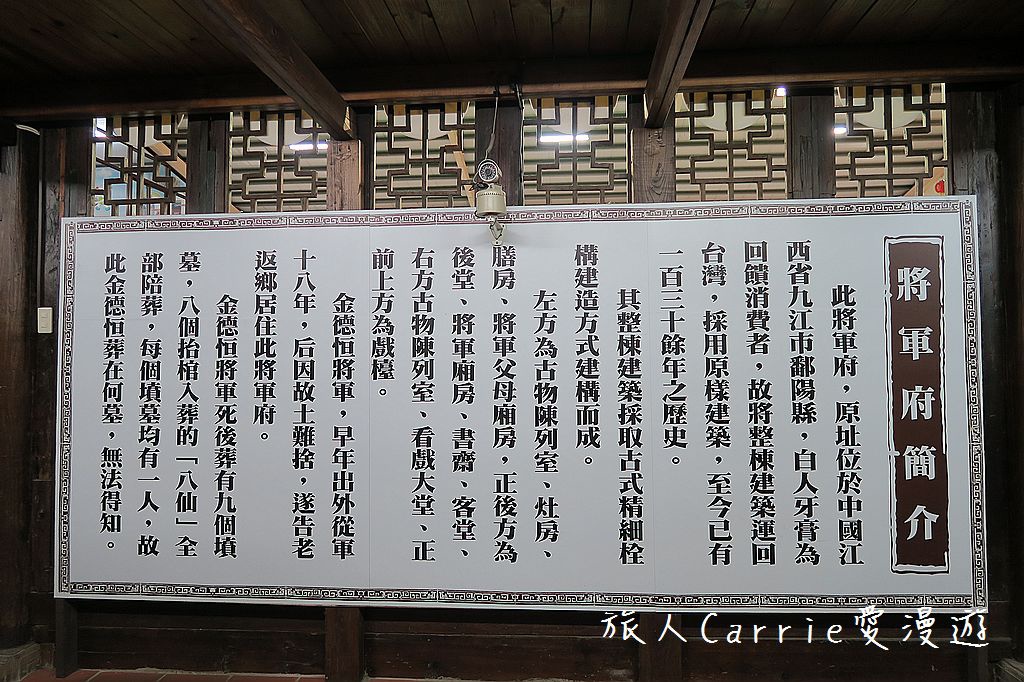 將軍府簡介
此將軍府，原址位於中國江
西省九江市鄱陽縣，白人牙膏為
回饋消費者，故將整棟建築運回
台灣，採用原樣建築，至今已有
一百三十餘年之歷史。
其整棟建築採取古式精細栓
構建造方式建構而成。
左方為古物陳列室、灶房、
膳房、將軍父母廂房，正後方為
後堂、將軍廂房、書齋、客堂、
右方古物陳列室、看戲大堂、正
前上方為戲檯。
金德恒將軍，早年出外從軍
十八年，后因故土難捨，遂告老
返鄉居住此將軍府。
金德恒將軍死後葬有九個墳
墓，八個抬棺入葬的「八仙」全
部陪葬，每個墳墓均有一人，故
此金德恒葬在何墓，無法得知。
旅人Carrie愛漫遊